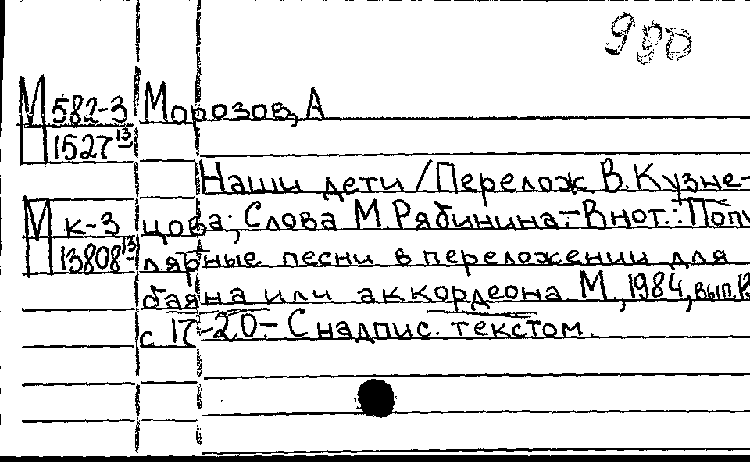 980
М 582-3 Морозов, А
П 1527 13
Наши дети / Перелож В. Кузне-
М к-3 цова; Слова М. Рябинина.- В нот.: Попу
П 13808 13 лярные песни в переложении для
баяна или аккордеона М., 1984, вып.
с 17-20.- С надпис. текстом.